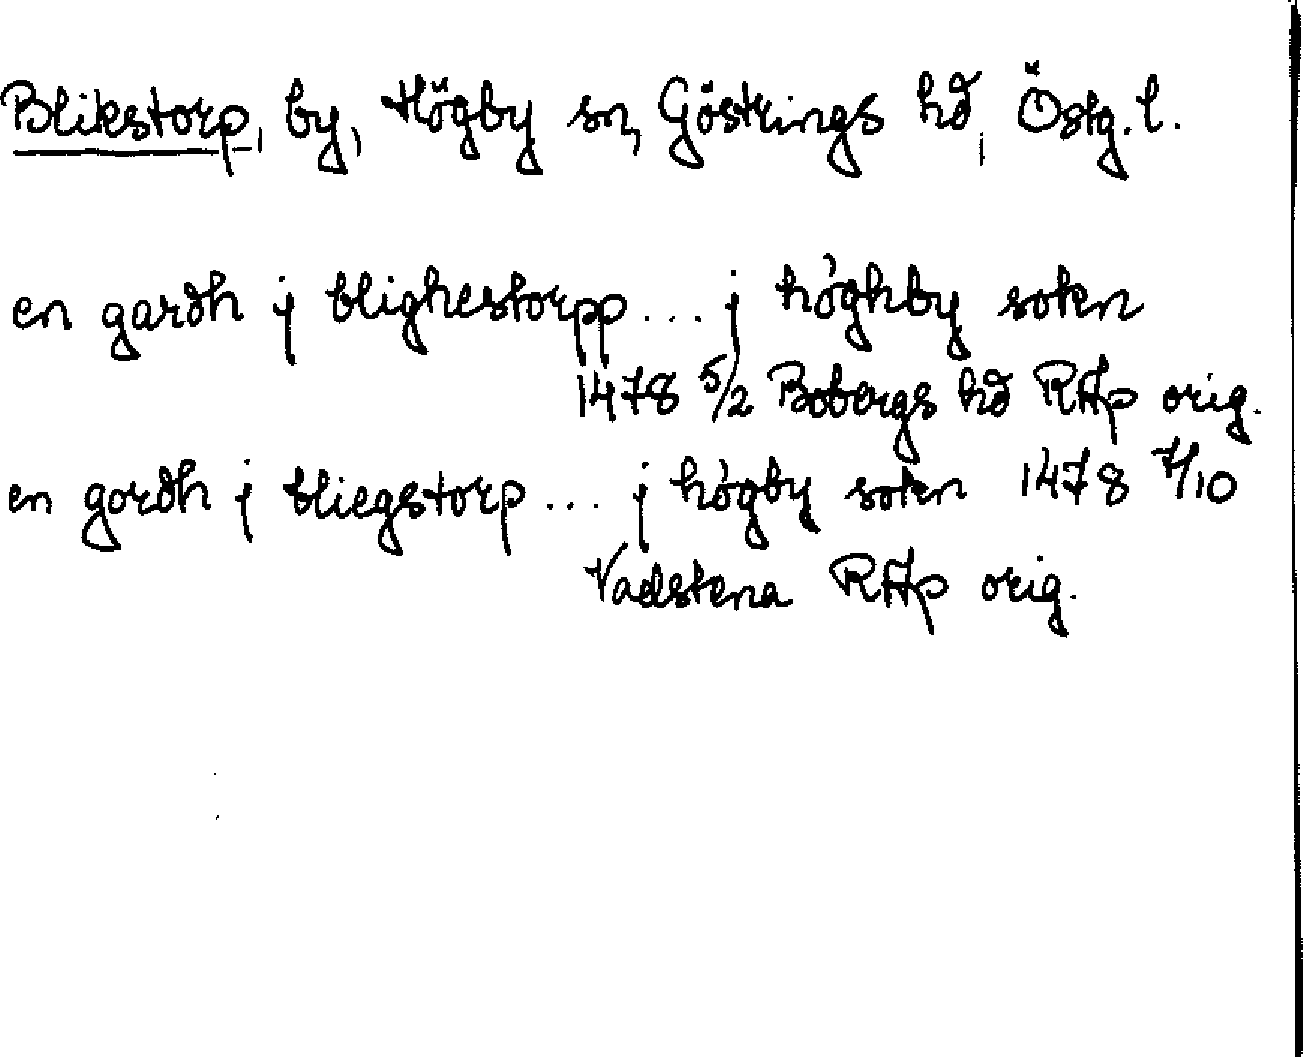 Blikstorp, by, Högby sn, Göstrings hd, Östg. l.
en gardh j blighestorpp ... j höghby sokn
1478 5/2 Bobergs hd RAp orig.
en gordh j bliegstorp ... j högby sokn 1478 7/10
Vadstena RAp orig.